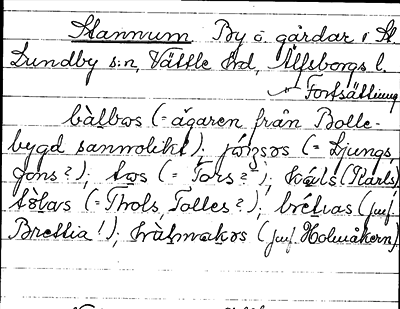 Stannum By o. gårdar i St.
Lundby s:n, Vättle hd, Älfsborgs l.
Fortsättning
bàlbos (= ägaren från Bolle-
bygd sannolikt); jóṇsəs (= Ljungs,
Jons?); tos (= Tors?); káls (Karls)
tòlas (= Thols, Tolles?); brétias (jmf.
Brettia!); hàlmakəs (jmf. Holmåkern).